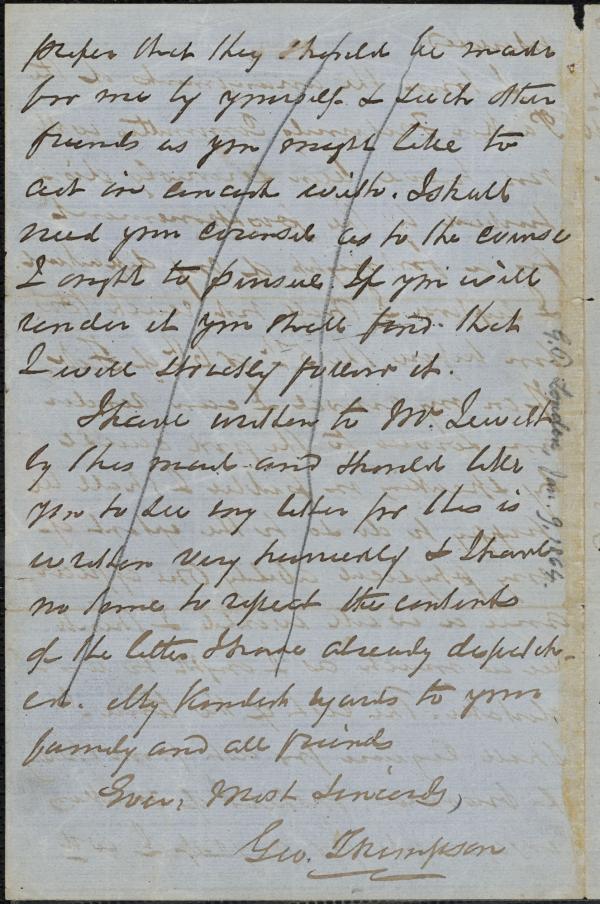 prefer that they should be made
for me by yourself & such other
friends as you might like to
act in concert with. I shall
need your counsel as to the course
I ought to pursue. If you will
render it you shall find that
I will strictly follow it.
I have written to Mr.
by this mail and should like
you to see my letter for this is
written very hurriedly & I have
no time to repeat the contents
of the letter I have already dispatch-
ed. My kindest regards to your
family and all friends
Ever, Most Sincerely,
Geo. Thompson
London, Jan. 9, 1864.